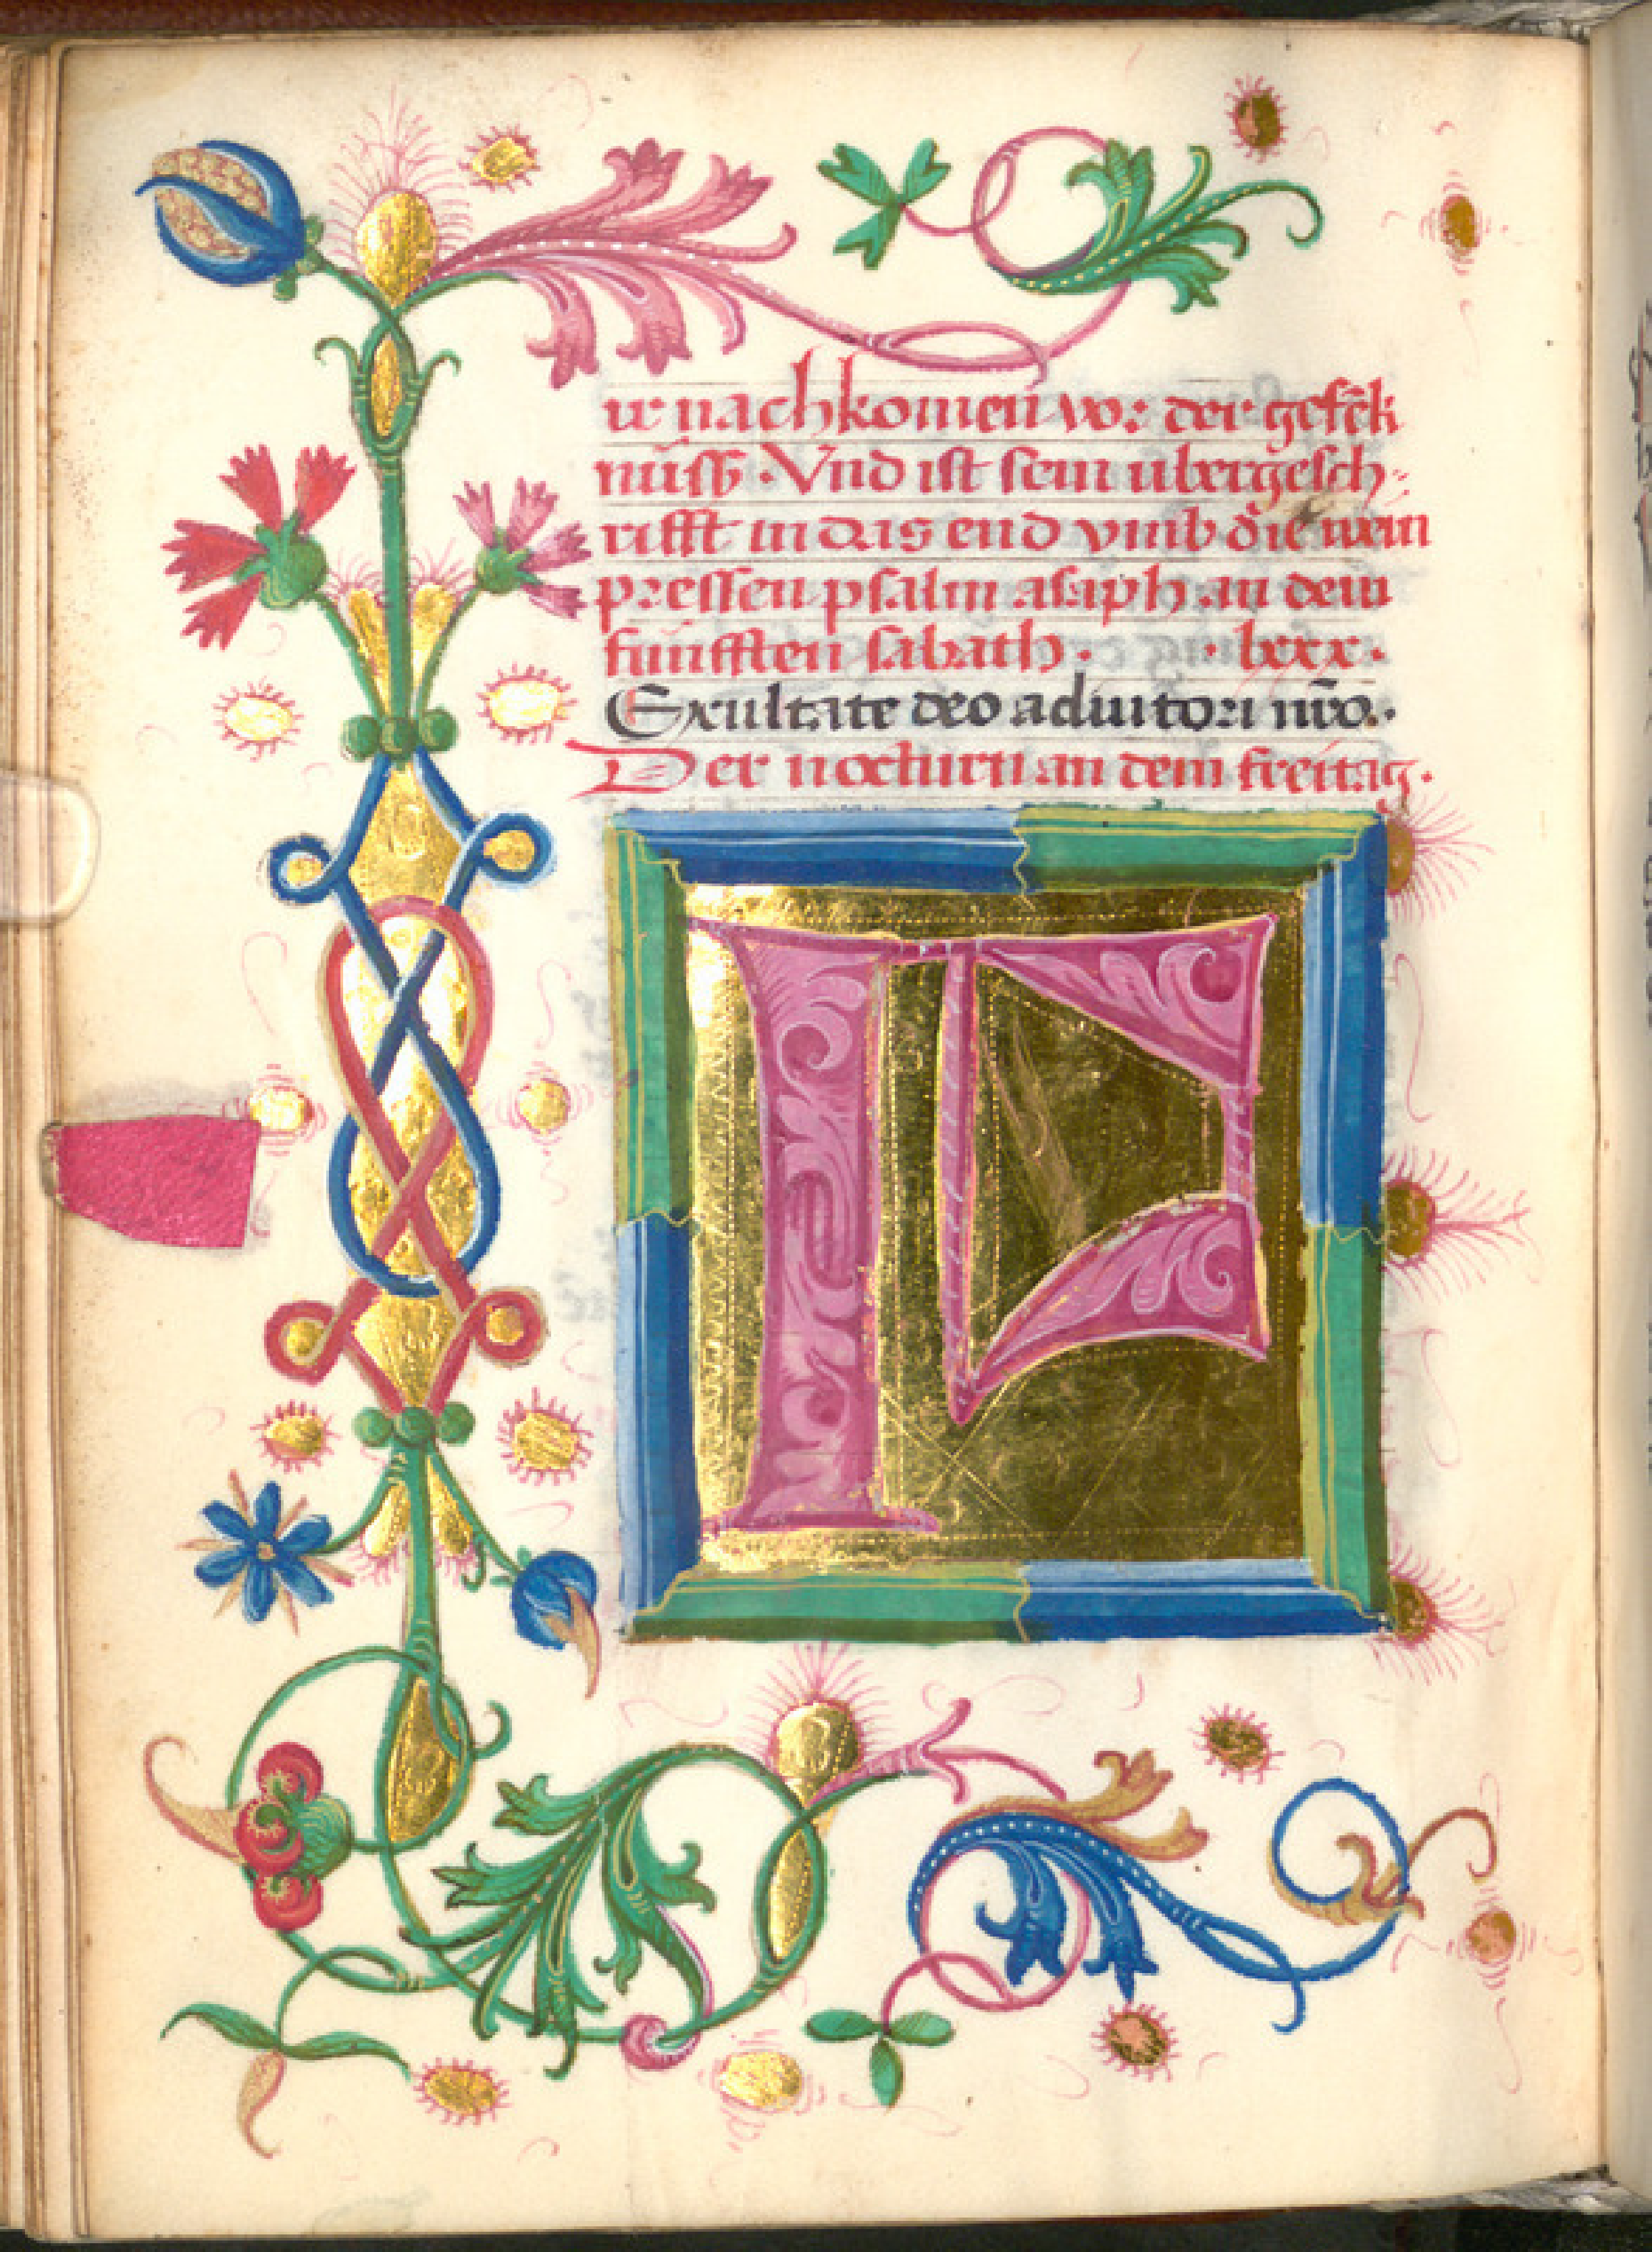 ir nachkomen vor der gefēk
nuß · Vnd ist sein ubergesch-
rifft in das end vmb die wein
pressen psalm asaph an dem
funfften sabath · · lxxx ·
Exultate deo adiutori nr̄o ·
Der nocturn an dem freitag ·